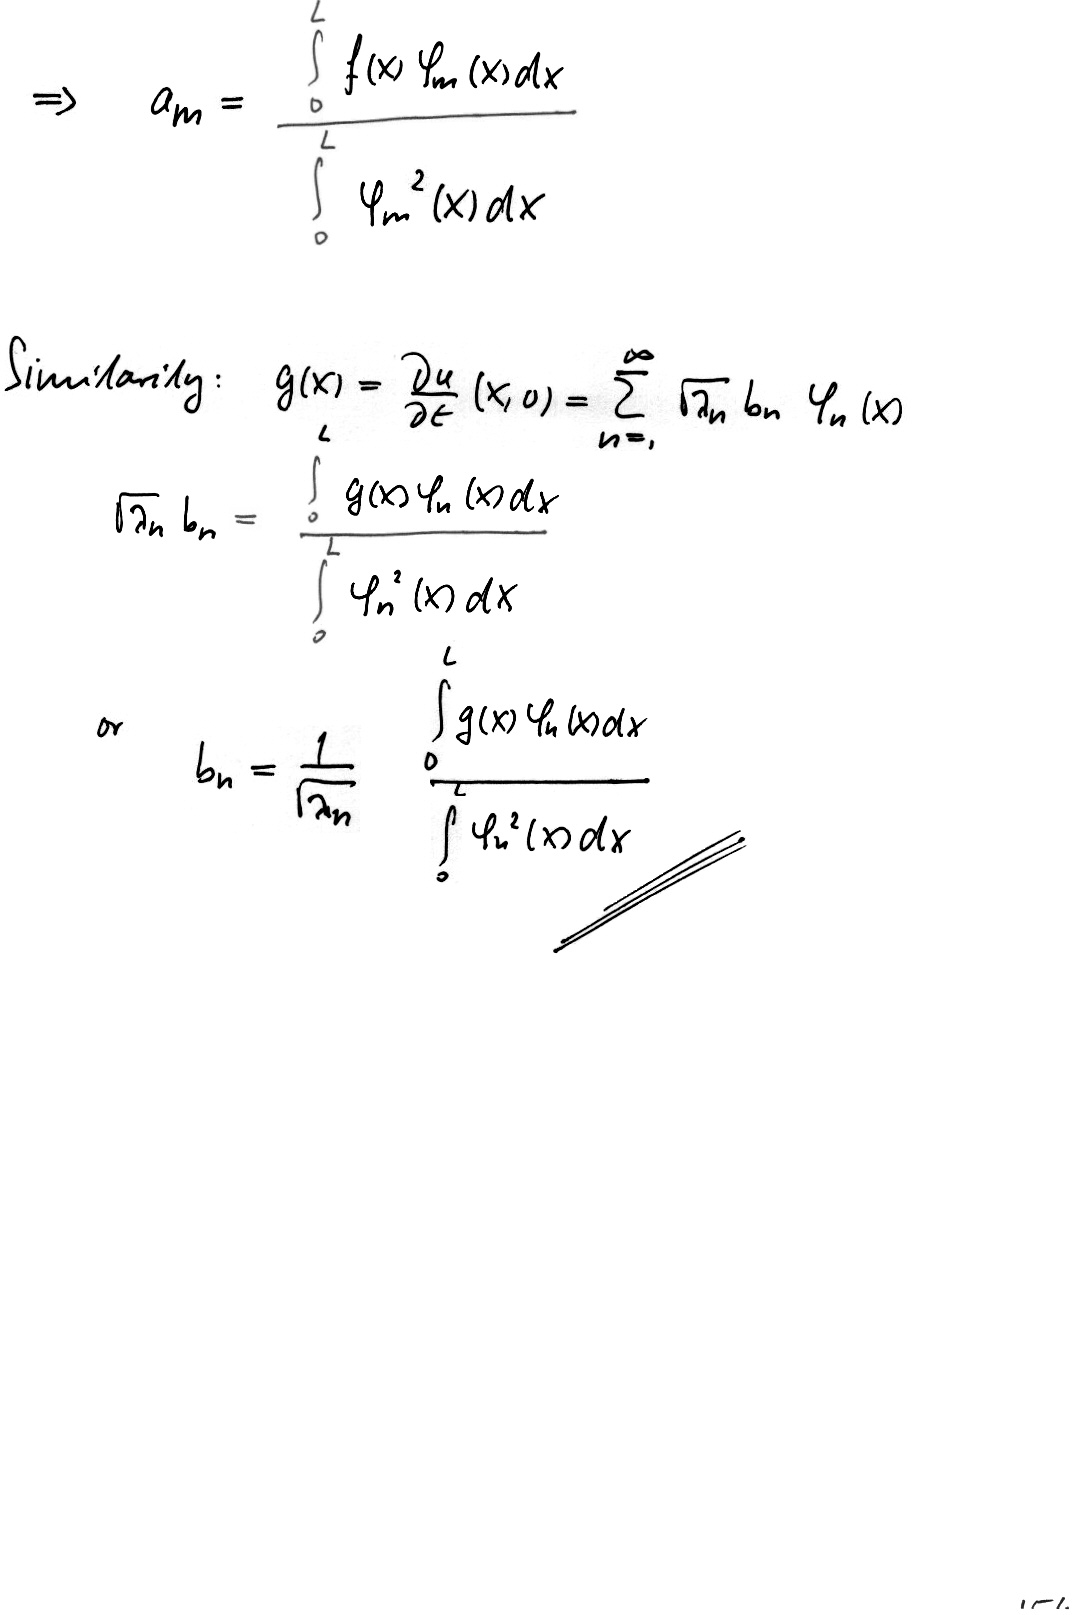 ⇒ a_m = ∫_0^L f(x) φ_m(x) dx / ∫_0^L φ_m²(x) dx
Similarity: g(x) = ∂u/∂t (x,0) = ∑_{n=1}^∞ √λ_n b_n φ_n(x)
√λ_n b_n = ∫_0^L g(x) φ_n(x) dx / ∫_0^L φ_n²(x) dx
or b_n = 1/√λ_n ∫_0^L g(x) φ_n(x) dx / ∫_0^L φ_n²(x) dx